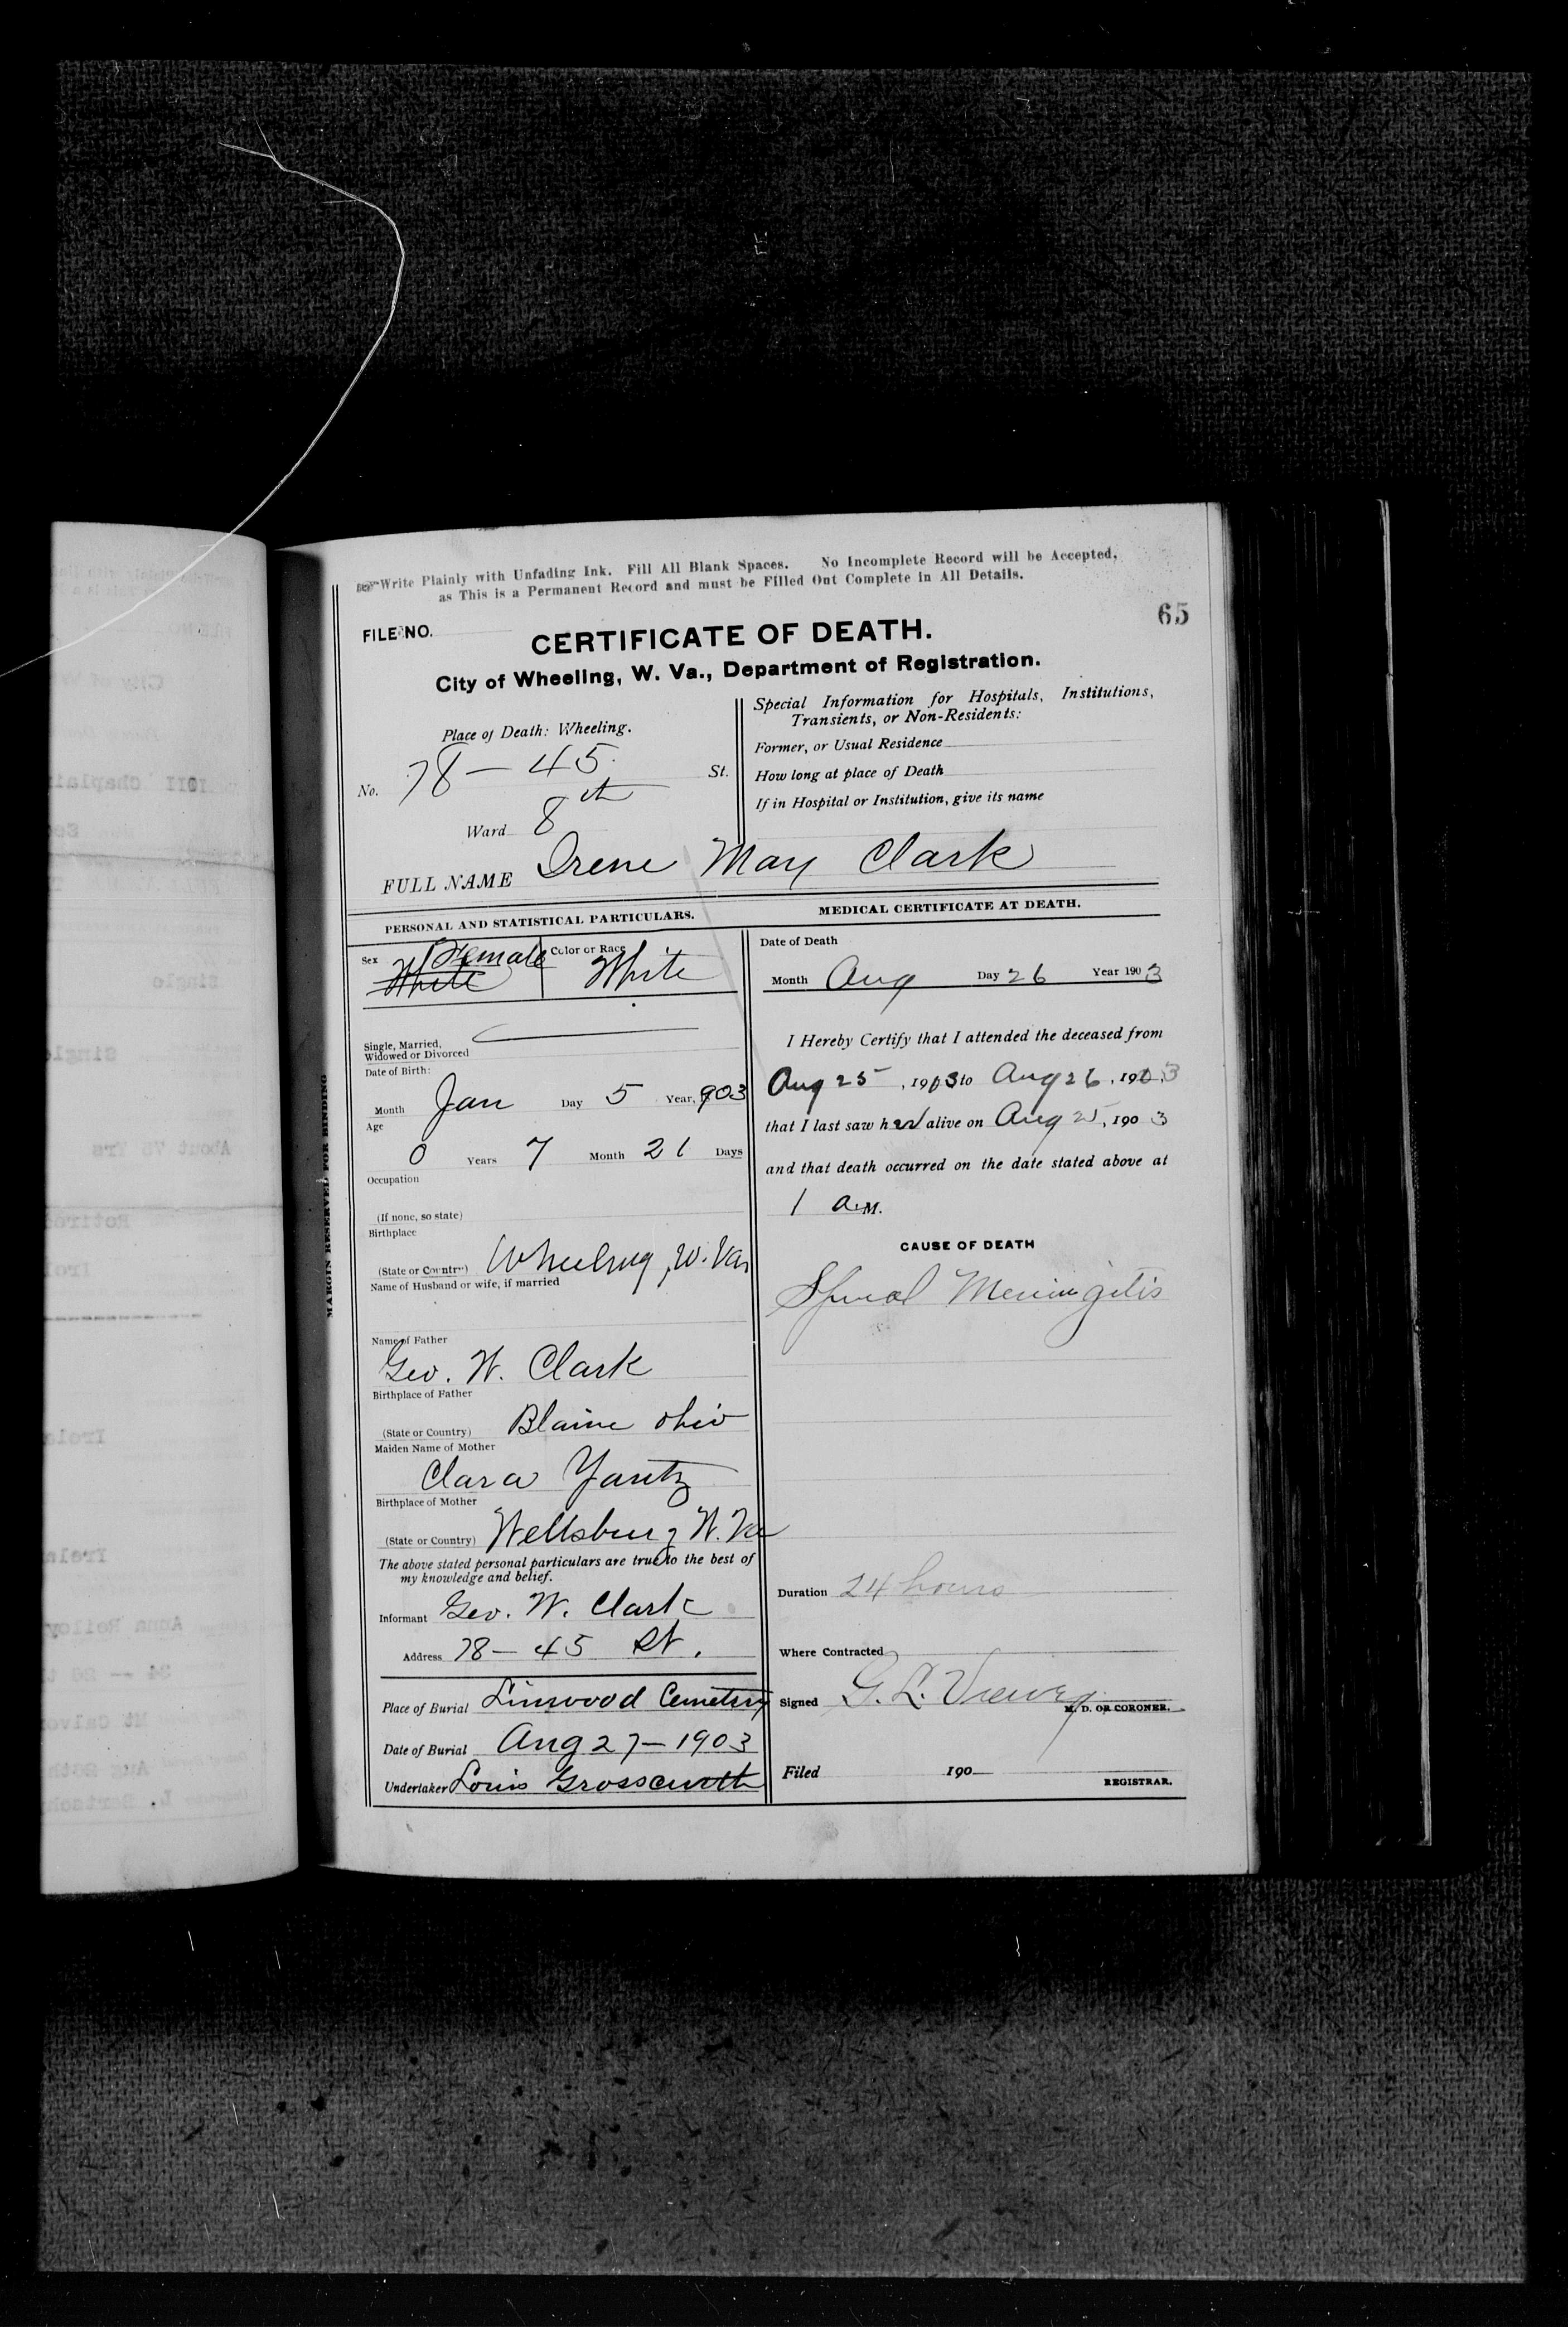 Write Plainly with Unfading Ink. Fill All Blank Spaces. No Incomplete Record will be Accepted,
as This is a Permanent Record and must be Filled Out Complete in All Details.
65
FILE NO.
CERTIFICATE OF DEATH.
City of Wheeling, W. Va., Department of Registration.
Place of Death: Wheeling.
No. 78 — 45 St.
Ward 8th
Special Information for Hospitals, Institutions,
Transients, or Non-Residents:
Former, or Usual Residence
How long at place of Death
If in Hospital or Institution, give its name
FULL NAME Irene May Clark
PERSONAL AND STATISTICAL PARTICULARS.
Sex Female White
Color or Race White
Single, Married,
Widowed or Divorced
Date of Birth:
Month Jan Day 5 Year, 1903
Age
0 Years 7 Month 21 Days
Occupation
(If none, so state)
Birthplace
(State or Country) Wheeling, W. Va
Name of Husband or wife, if married
Name of Father
Geo. W. Clark
Birthplace of Father
(State or Country) Blaine Ohio
Maiden Name of Mother
Clara Yantz
Birthplace of Mother
(State or Country) Wellsburg W. Va
The above stated personal particulars are true to the best of
my knowledge and belief.
Informant Geo. W. Clark
Address 78 — 45 St.
Place of Burial Linwood Cemetery
Date of Burial Aug 27 — 1903
Undertaker Louis
MEDICAL CERTIFICATE AT DEATH.
Date of Death
Month Aug Day 26 Year 1903
I Hereby Certify that I attended the deceased from
Aug 25, 1903 to Aug 26, 1903
that I last saw her alive on Aug 25, 1903
and that death occurred on the date stated above at
1 a.M.
CAUSE OF DEATH
Spinal Meningitis
Duration 24 hours
Where Contracted
Signed G. L.
M. D. OR CORONER.
Filed 190
REGISTRAR.
MARGIN RESERVED FOR BINDING